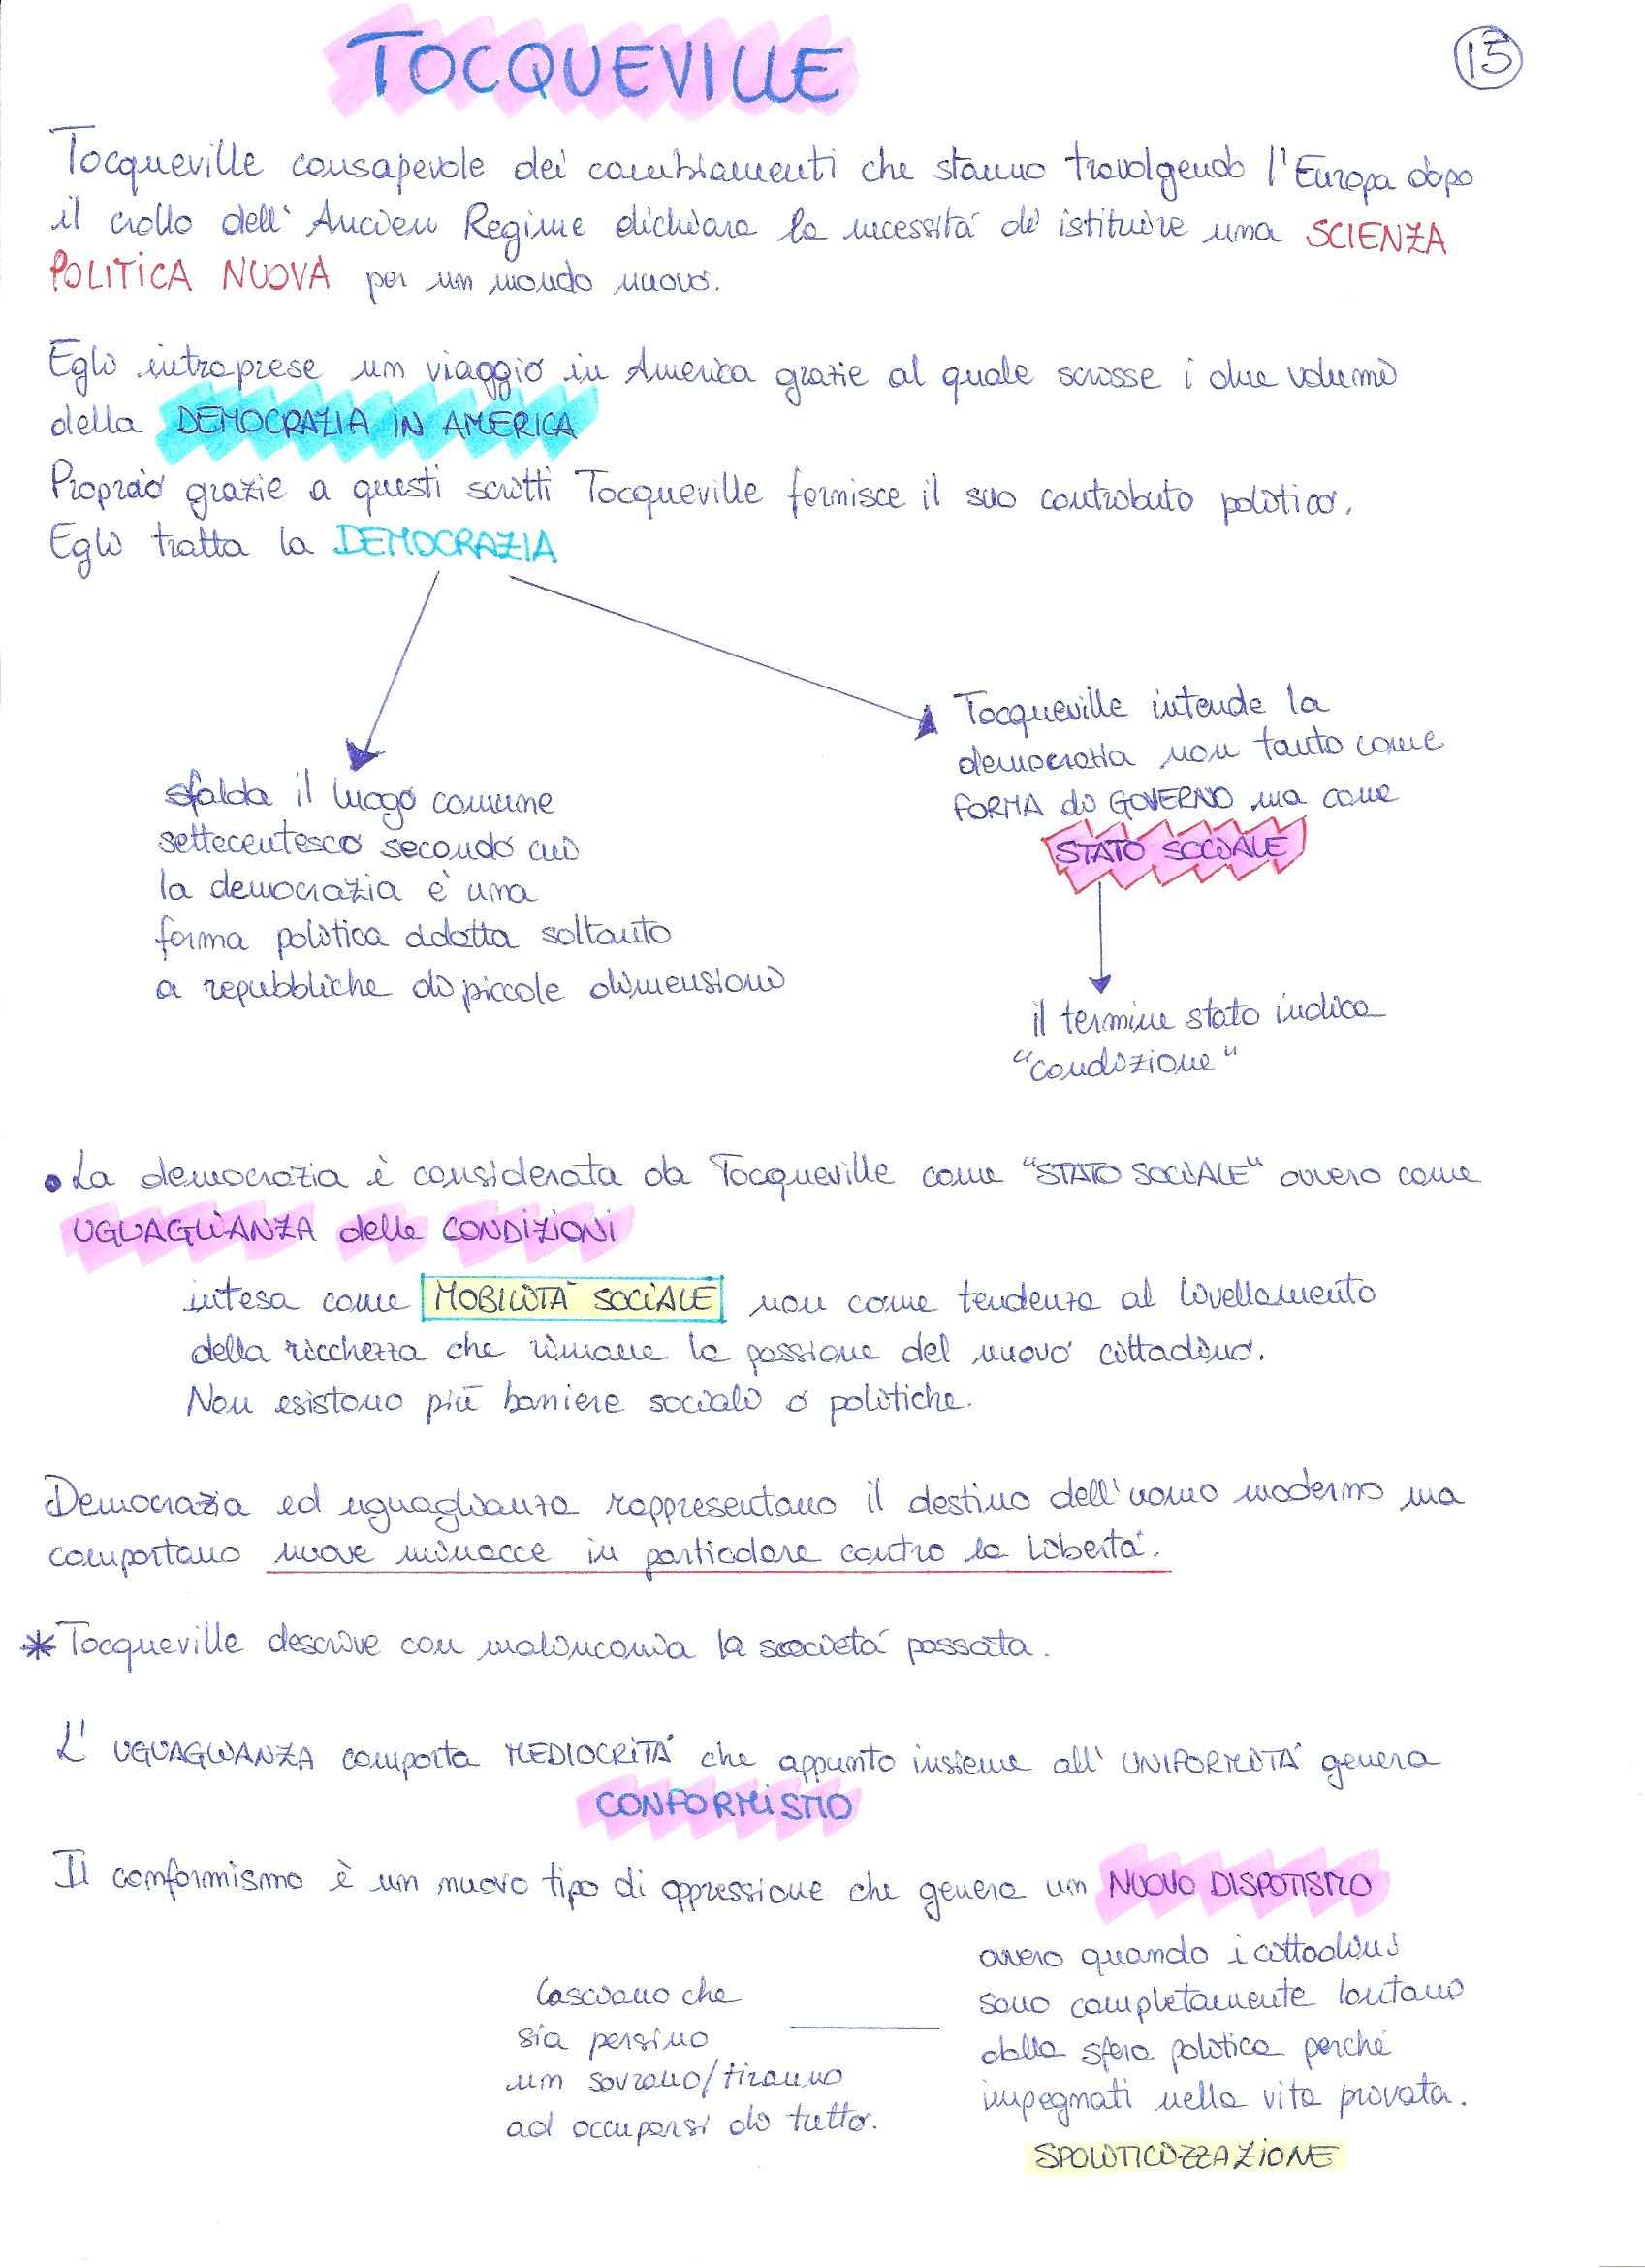 TOCQUEVILLE
15
Tocqueville consapevole dei cambiamenti che stanno travolgendo l'Europa dopo
il crollo dell'Ancien Regime dichiara la necessità di istituire una SCIENZA
POLITICA NUOVA per un mondo nuovo.
Egli intraprese un viaggio in America grazie al quale scrisse i due volumi
della DEMOCRAZIA IN AMERICA
Proprio grazie a questi scritti Tocqueville fornisce il suo contributo politico.
Egli tratta la DEMOCRAZIA
sfalda il luogo comune
settecentesco secondo cui
la democrazia è una
forma politica adatta soltanto
a repubbliche di piccole dimensioni
Tocqueville intende la
democrazia non tanto come
FORMA di GOVERNO ma come
STATO SOCIALE
il termine stato indica
"condizione"
• La democrazia è considerata da Tocqueville come "STATO SOCIALE" ovvero come
UGUAGLIANZA delle CONDIZIONI
intesa come MOBILITÀ SOCIALE non come tendenza al livellamento
della ricchezza che rimane la passione del nuovo cittadino.
Non esistono più barriere sociali o politiche.
Democrazia ed uguaglianza rappresentano il destino dell'uomo moderno ma
comportano nuove minacce in particolare contro la libertà.
* Tocqueville descrive con malinconia la società passata.
L'UGUAGLIANZA comporta MEDIOCRITÀ che appunto insieme all'UNIFORMITÀ genera
CONFORMISMO
Il conformismo è un nuovo tipo di oppressione che genera un NUOVO DISPOTISMO
ovvero quando i cittadini
sono completamente lontani
dalla sfera politica perché
impegnati nella vita privata.
SPOLITICIZZAZIONE
lasciano che
sia persino
un sovrano/tiranno
ad occuparsi di tutto.